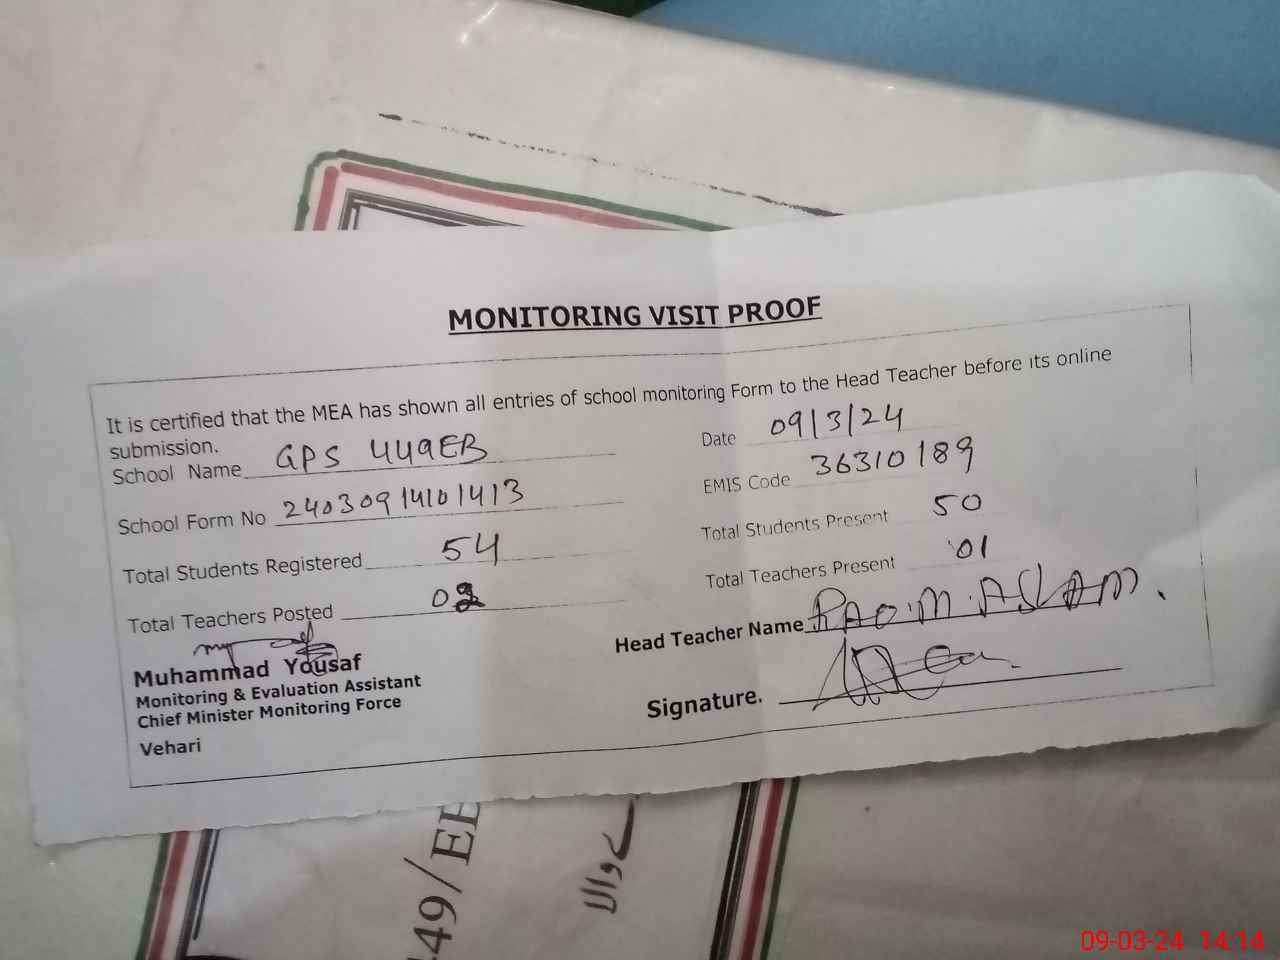 MONITORING VISIT PROOF
It is certified that the MEA has shown all entries of school monitoring Form to the Head Teacher before its online
submission.
School Name GPS 449EB
Date 09/3/24
School Form No 24030914101413
EMIS Code 36310189
Total Students Registered 54
Total Students Present 50
Total Teachers Posted
Total Teachers Present 01
Muhammad Yousaf
Monitoring & Evaluation Assistant
Chief Minister Monitoring Force
Vehari
Head Teacher Name RAO.M.ASLAM.
Signature.
49/EB
والا
09-03-24 14:14